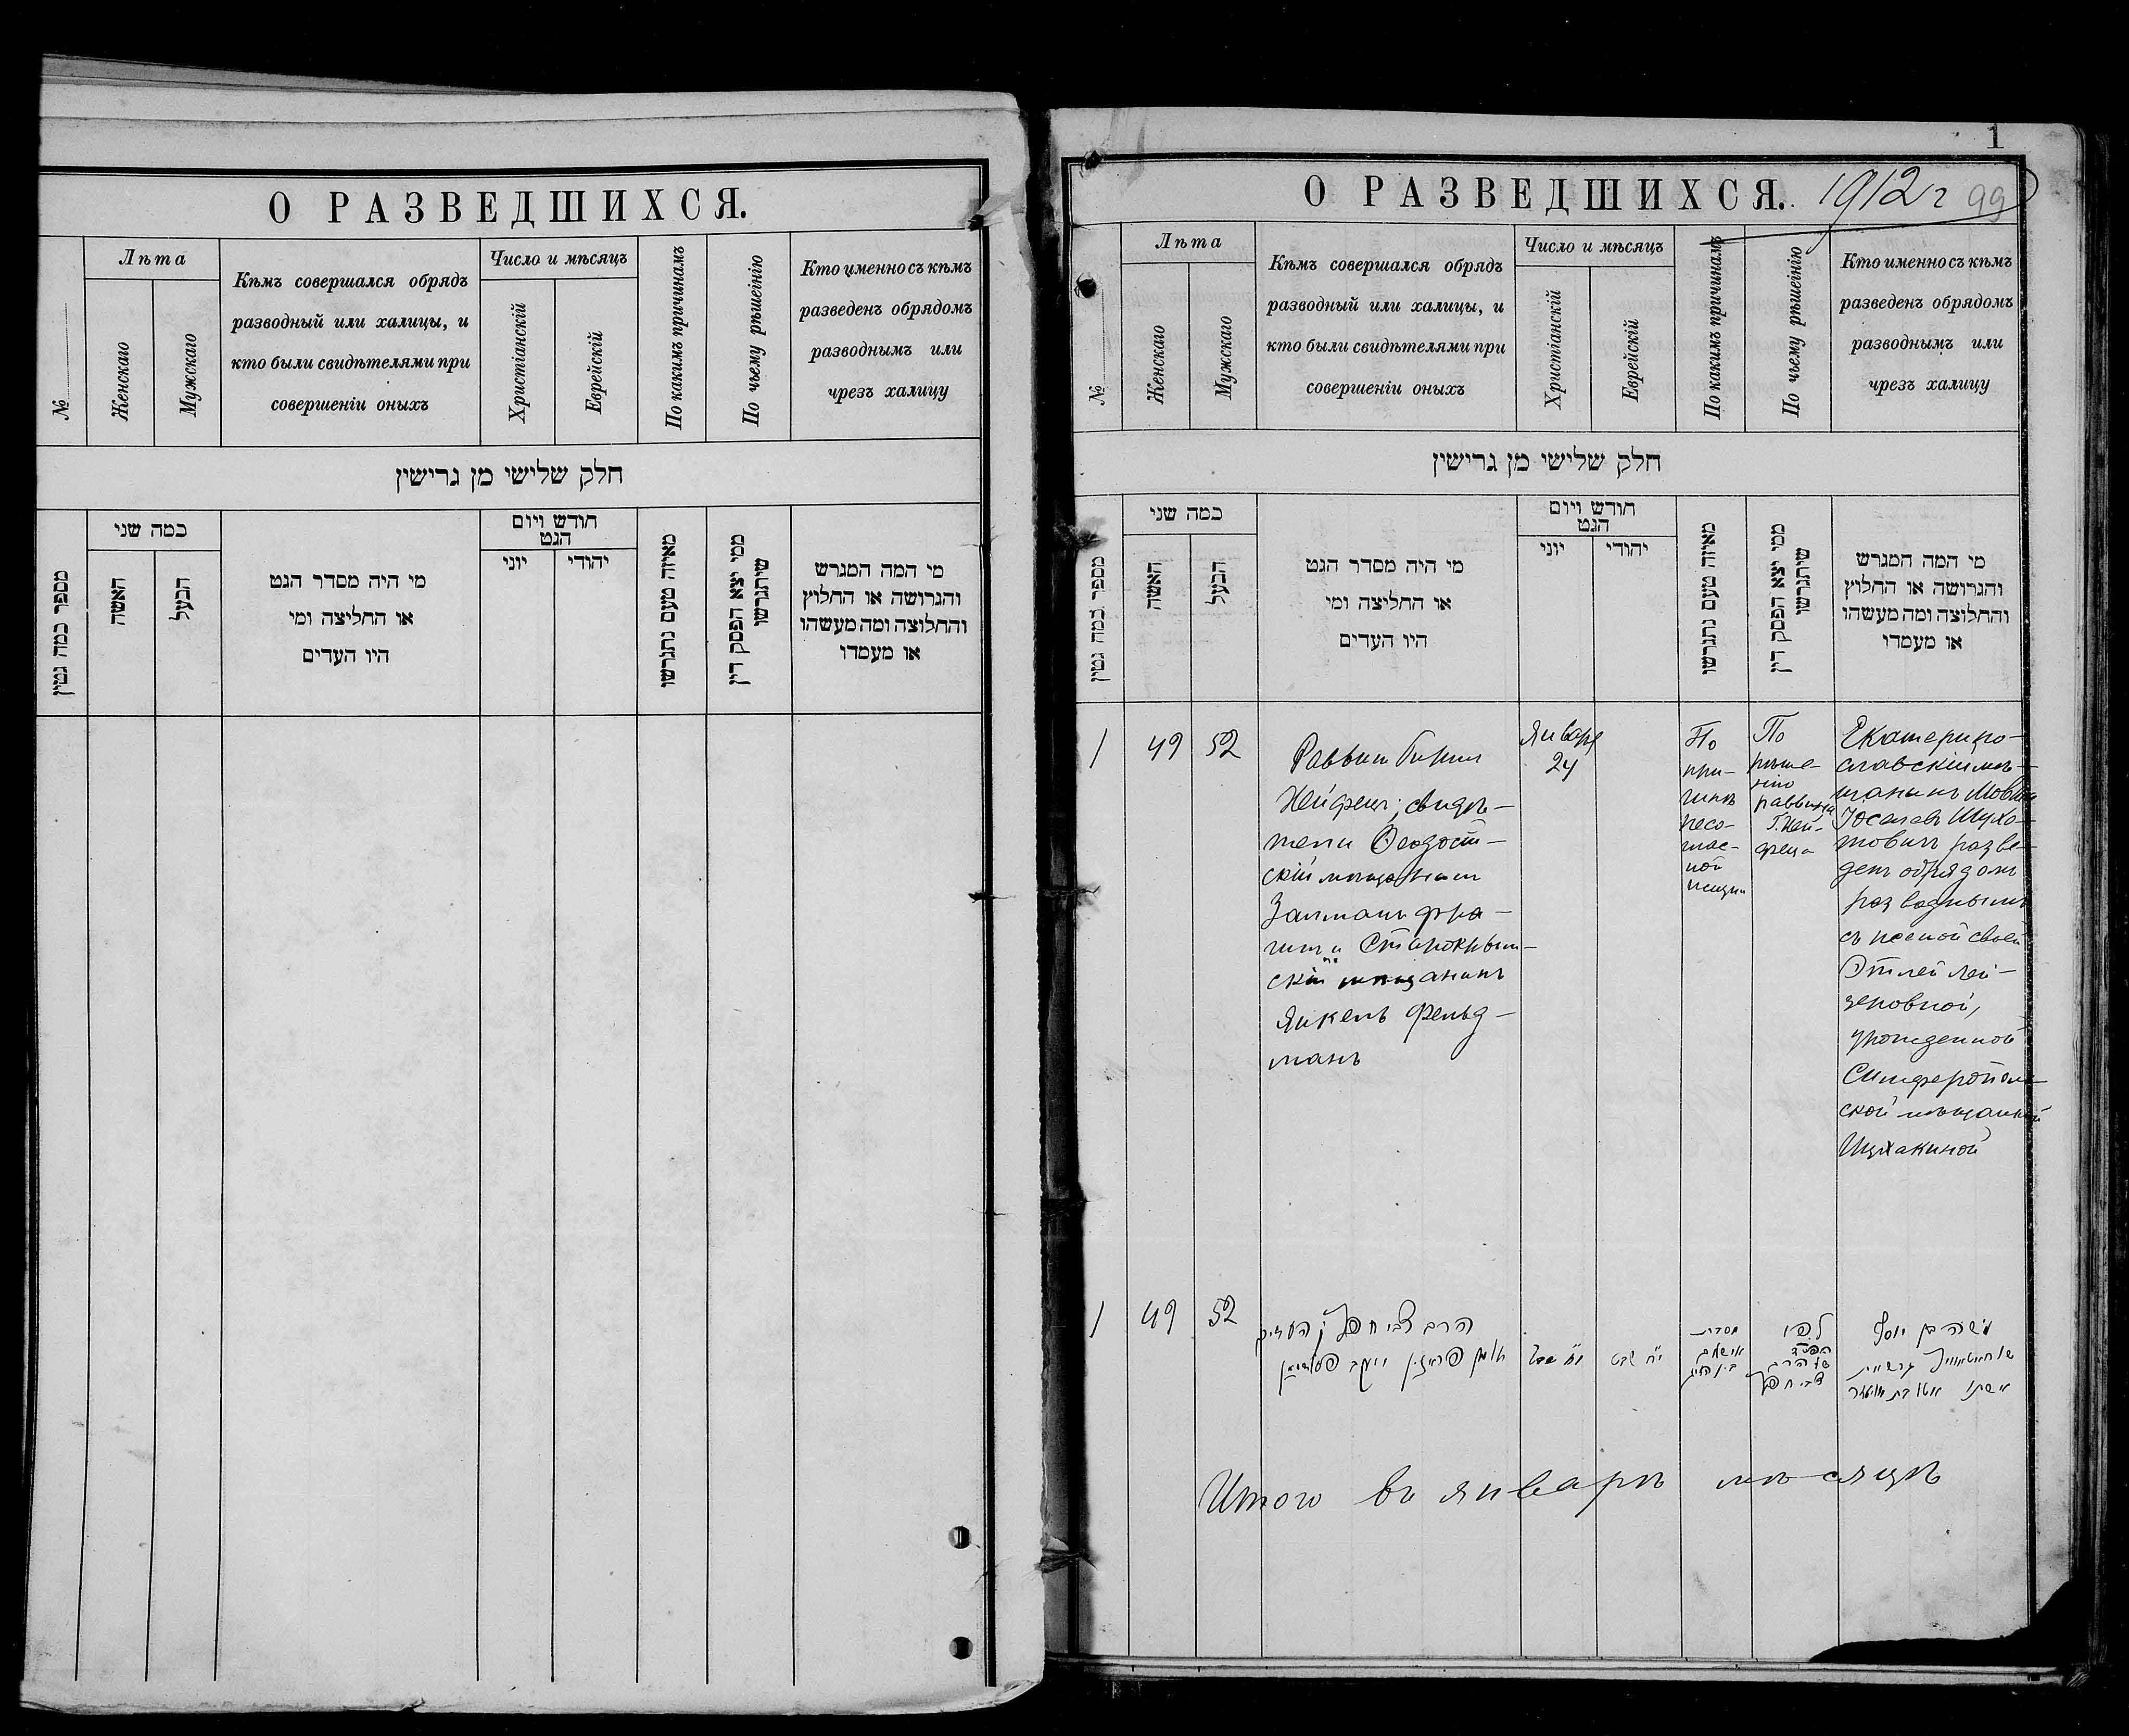 О РАЗВЕДШИХСЯ.
№
Лѣта
Женскаго
Мужскаго
Кѣмъ совершался обрядъ
разводный или халицы, и
кто были свидѣтелями при
совершеніи оныхъ
Число и мѣсяцъ
Христіанскій
Еврейскій
По какимъ причинамъ
По чьему рѣшеінію
Кто именно съ кѣмъ
разведенъ обрядомъ
разводнымъ или
чрезъ халицу
חלק שלישי מן גרישין
מספר כמה גטין
כמה שני
האשה
הבעל
מי היה מסדר הגט
או החליצה ומי
היו העדים
חודש ויום
הגט
יוני
יהודי
מאיזה טעם נתגרשו
ממי יצא הפסק דין
שיתגרשו
מי המה המגרש
והגרושה או החלוץ
והחלוצה ומה מעשהו
או מעמדו
1
О РАЗВЕДШИХСЯ. 1912 г 99
№
Лѣта
Женскаго
Мужскаго
Кѣмъ совершался обрядъ
разводный или халицы, и
кто были свидѣтелями при
совершеніи оныхъ
Число и мѣсяцъ
Христіанскій
Еврейскій
По какимъ причинамъ
По чьему рѣшеінію
Кто именно съ кѣмъ
разведенъ обрядомъ
разводнымъ или
чрезъ халицу
חלק שלישי מן גרישין
מספר כמה גטין
כמה שני
האשה
הבעל
מי היה מסדר הגט
או החליצה ומי
היו העדים
חודש ויום
הגט
יוני
יהודי
מאיזה טעם נתגרשו
ממי יצא הפסק דין
שיתגרשו
מי המה המגרש
והגרושה או החלוץ
והחלוצה ומה מעשהו
או מעמדו
1
49
52
Раввинъ
Хейфецъ; свидѣ-
тели Ѳеодосій-
скій мѣщанинъ
Залманъ
и Старокрым-
скій мѣщанинъ
Янкель Фельд-
манъ
Января
24
По
при-
чинѣ
несо-
глас-
ной
жизни
По
рѣше-
нію
раввина
Г. Хей-
феца
Екатерино-
славскій мѣ-
щанинъ Мовша
Іоселевъ Шухо-
товичъ разве-
денъ обрядомъ
разводнымъ
съ женой своей
Этлей Лей-
зеровной,
урожденной
Симферополь-
ской мѣщанкой
Ицхакиной
1
49
52
הרב צבי חפץ והעדים
זלמן פראגין ויעקב פעלדמאן
י״ח שבט
צבי חפץ
משה בן יוסף
אשתו
Итого въ январѣ мѣсяцѣ